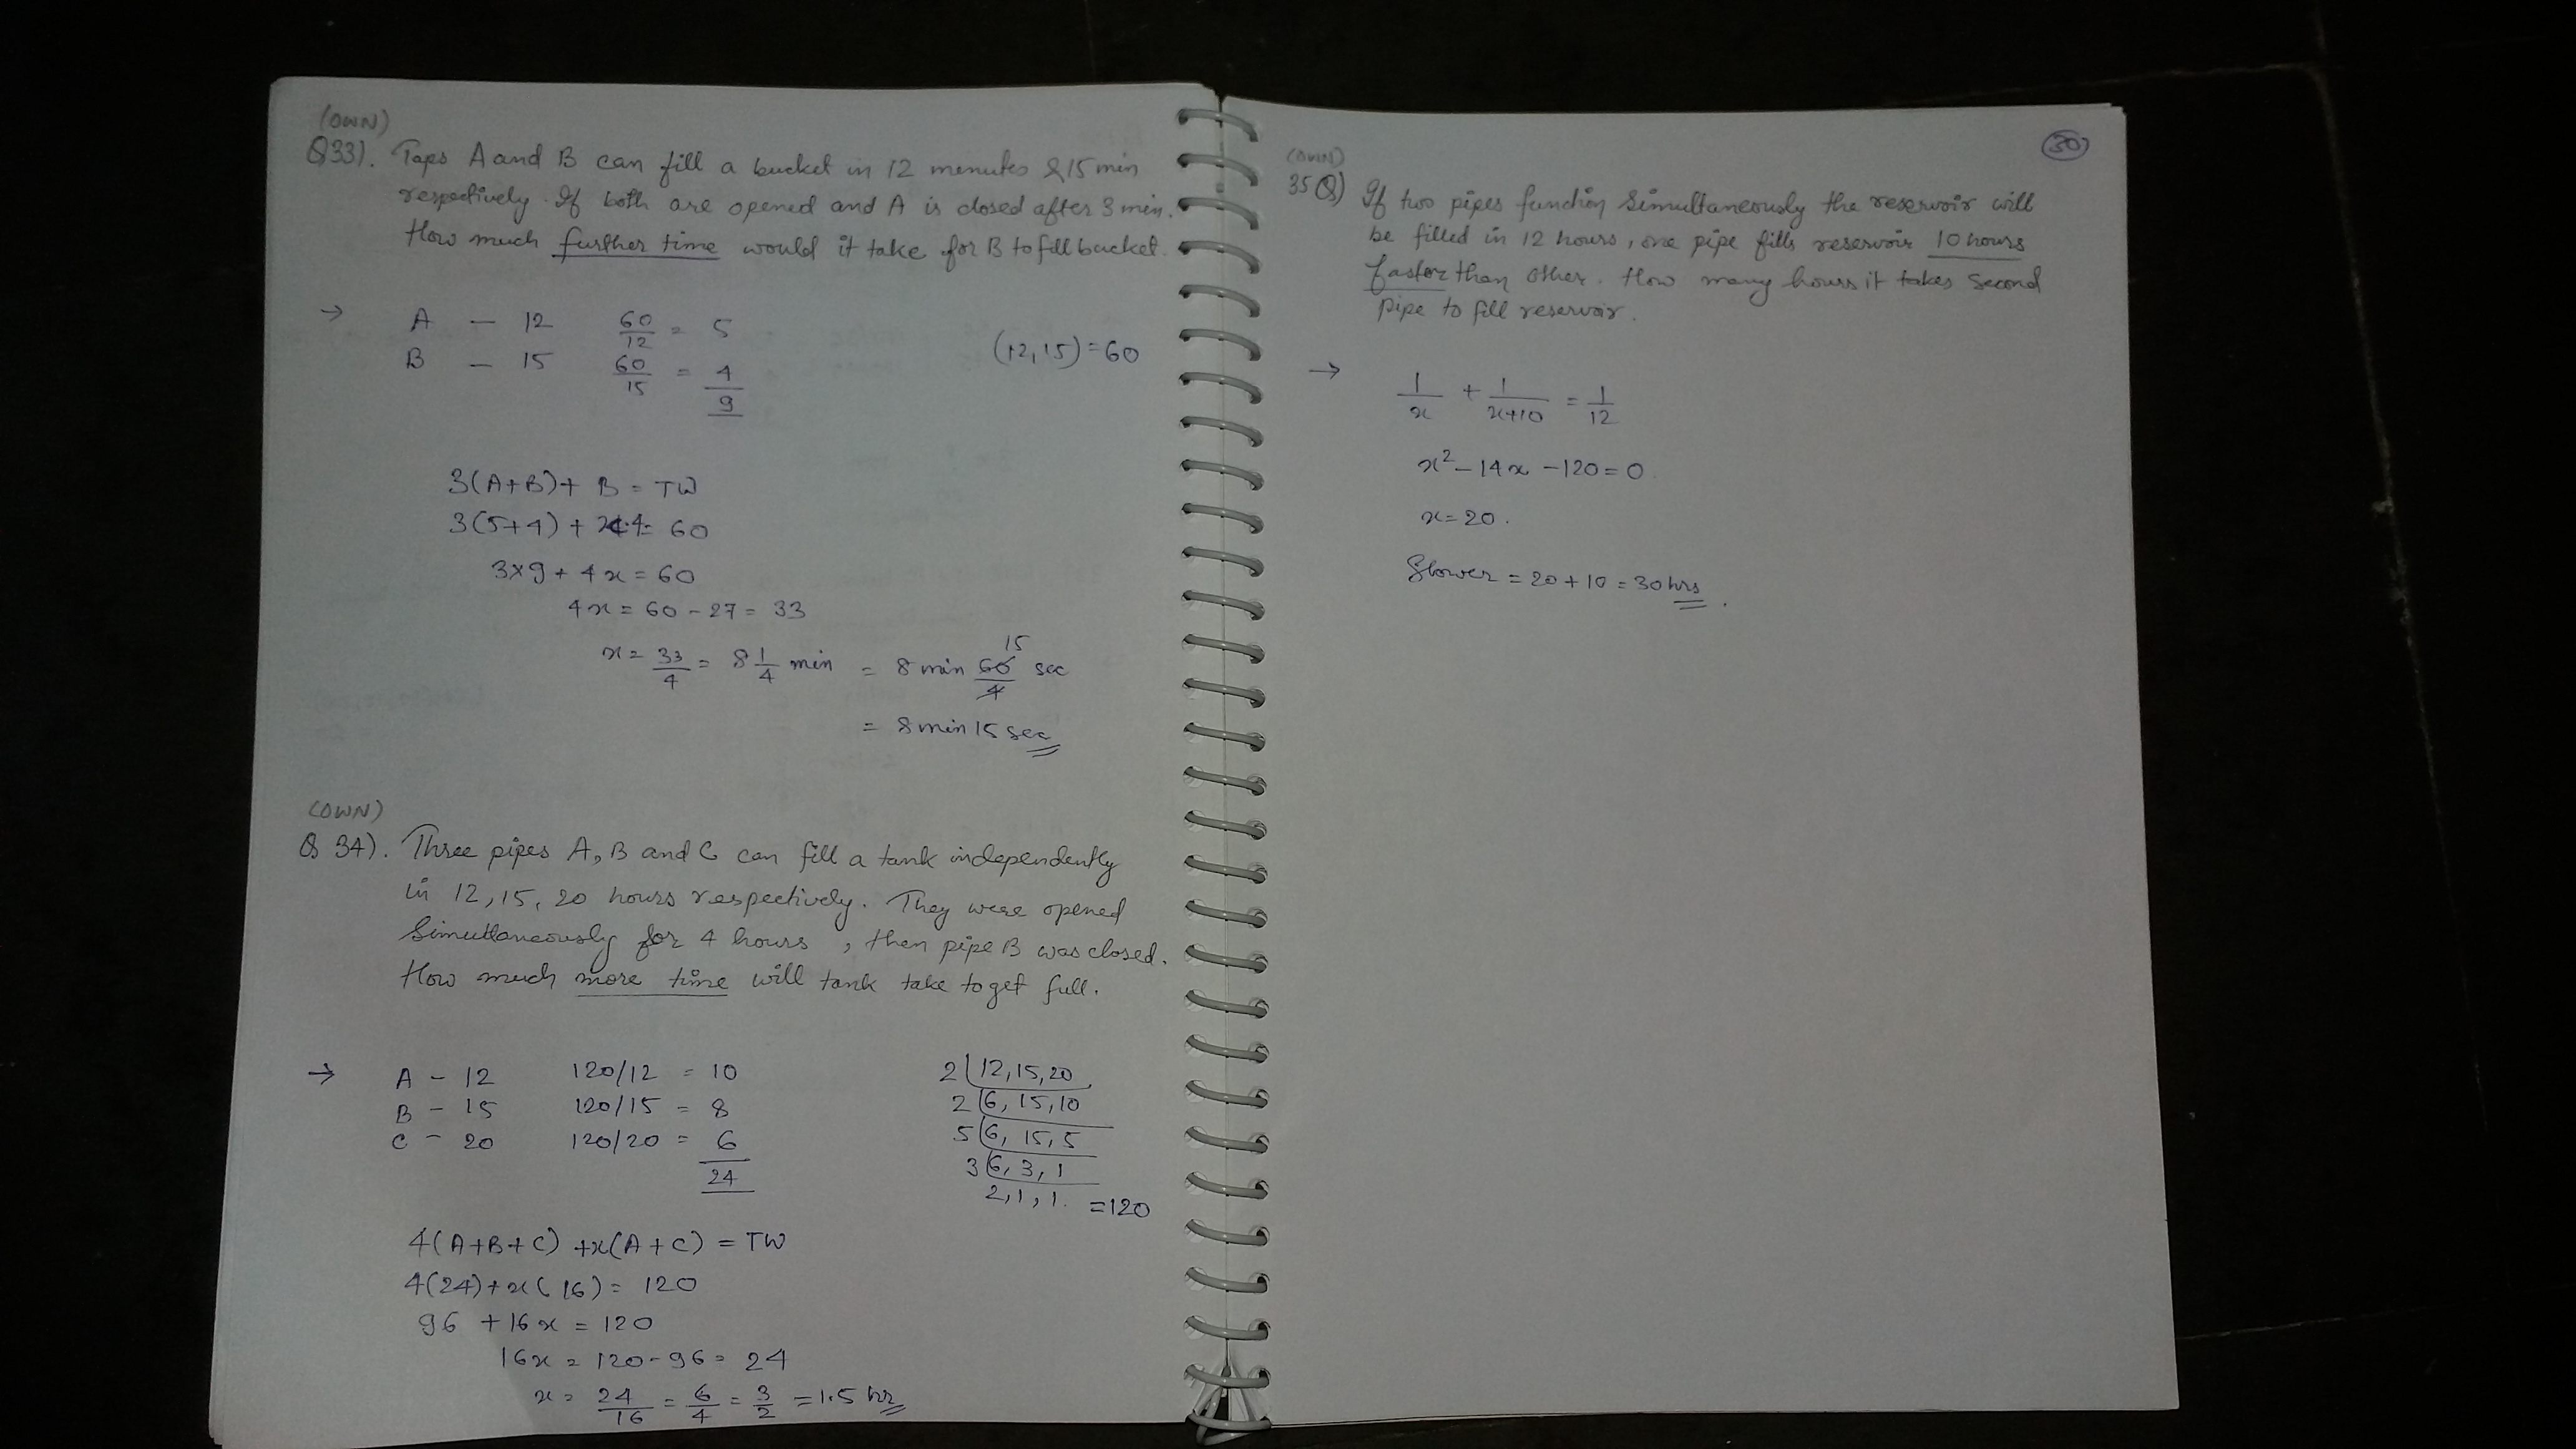 (OWN)
Q33). Taps A and B can fill a bucket in 12 menutes & 15 min
respectively. If both are opened and A is closed after 3 min.
How much further time would it take for B to fill bucket.
→ A - 12 60/12 = 5
B - 15 60/15 = 4
9
(12,15)=60
3(A+B)+ B = TW
3(5+4) + x4 = 60
3×9 + 4x = 60
4x = 60 - 27 = 33
x = 33/4 = 8 1/4 min = 8 min 60/4 sec
15
= 8 min 15 sec
(OWN)
Q 34). Three pipes A, B and C can fill a tank independently
in 12, 15, 20 hours respectively. They were opened
Simultaneously for 4 hours , then pipe B was closed.
How much more time will tank take to get full.
→ A - 12 120/12 = 10
B - 15 120/15 = 8
C - 20 120/20 = 6
24
2 | 12, 15, 20
2 | 6, 15, 10
5 | 6, 15, 5
3 | 6, 3, 1
2, 1, 1. = 120
4(A+B+C) +x(A+C) = TW
4(24)+x(16) = 120
96 +16x = 120
16x = 120-96 = 24
x = 24/16 = 6/4 = 3/2 = 1.5 hr
30
(OWN)
35Q) If two pipes function Simultaneously the reservoir will
be filled in 12 hours, one pipe fills reservoir 10 hours
faster than other. How many hours it takes Second
pipe to fill reservoir.
→ 1/x + 1/x+10 = 1/12
x² - 14x - 120 = 0
x = 20.
Slower = 20 + 10 = 30 hrs.